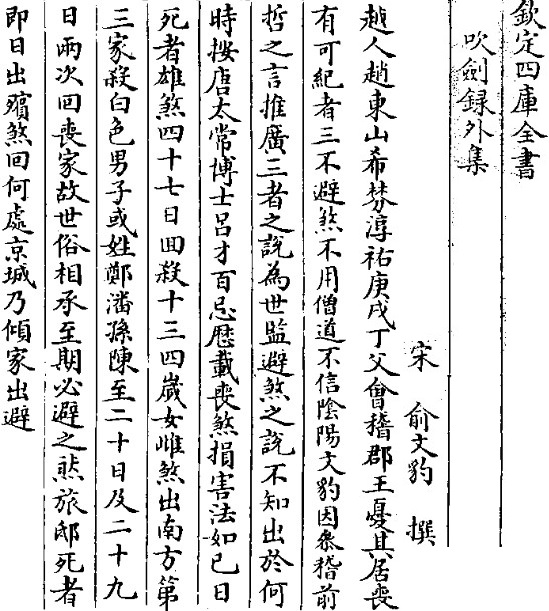 欽定四庫全書
吹劍録外集
宋 俞文豹 撰
越人趙東山希棼淳祐庚戌丁父會稽郡王憂其居喪
有可紀者三不避煞不用僧道不信陰陽文豹因叅稽前
哲之言推廣三者之說為世監避煞之說不知出於何
時按唐太常博士呂才百忌歴載喪煞損害法如巳日
死者雄煞四十七日回殺十三四嵗女雌煞出南方第
三家殺白色男子或姓鄭潘孫陳至二十日及二十九
日兩次回喪家故世俗相承至期必避之然旅邸死者
即日出殯煞回何處京城乃傾家出避